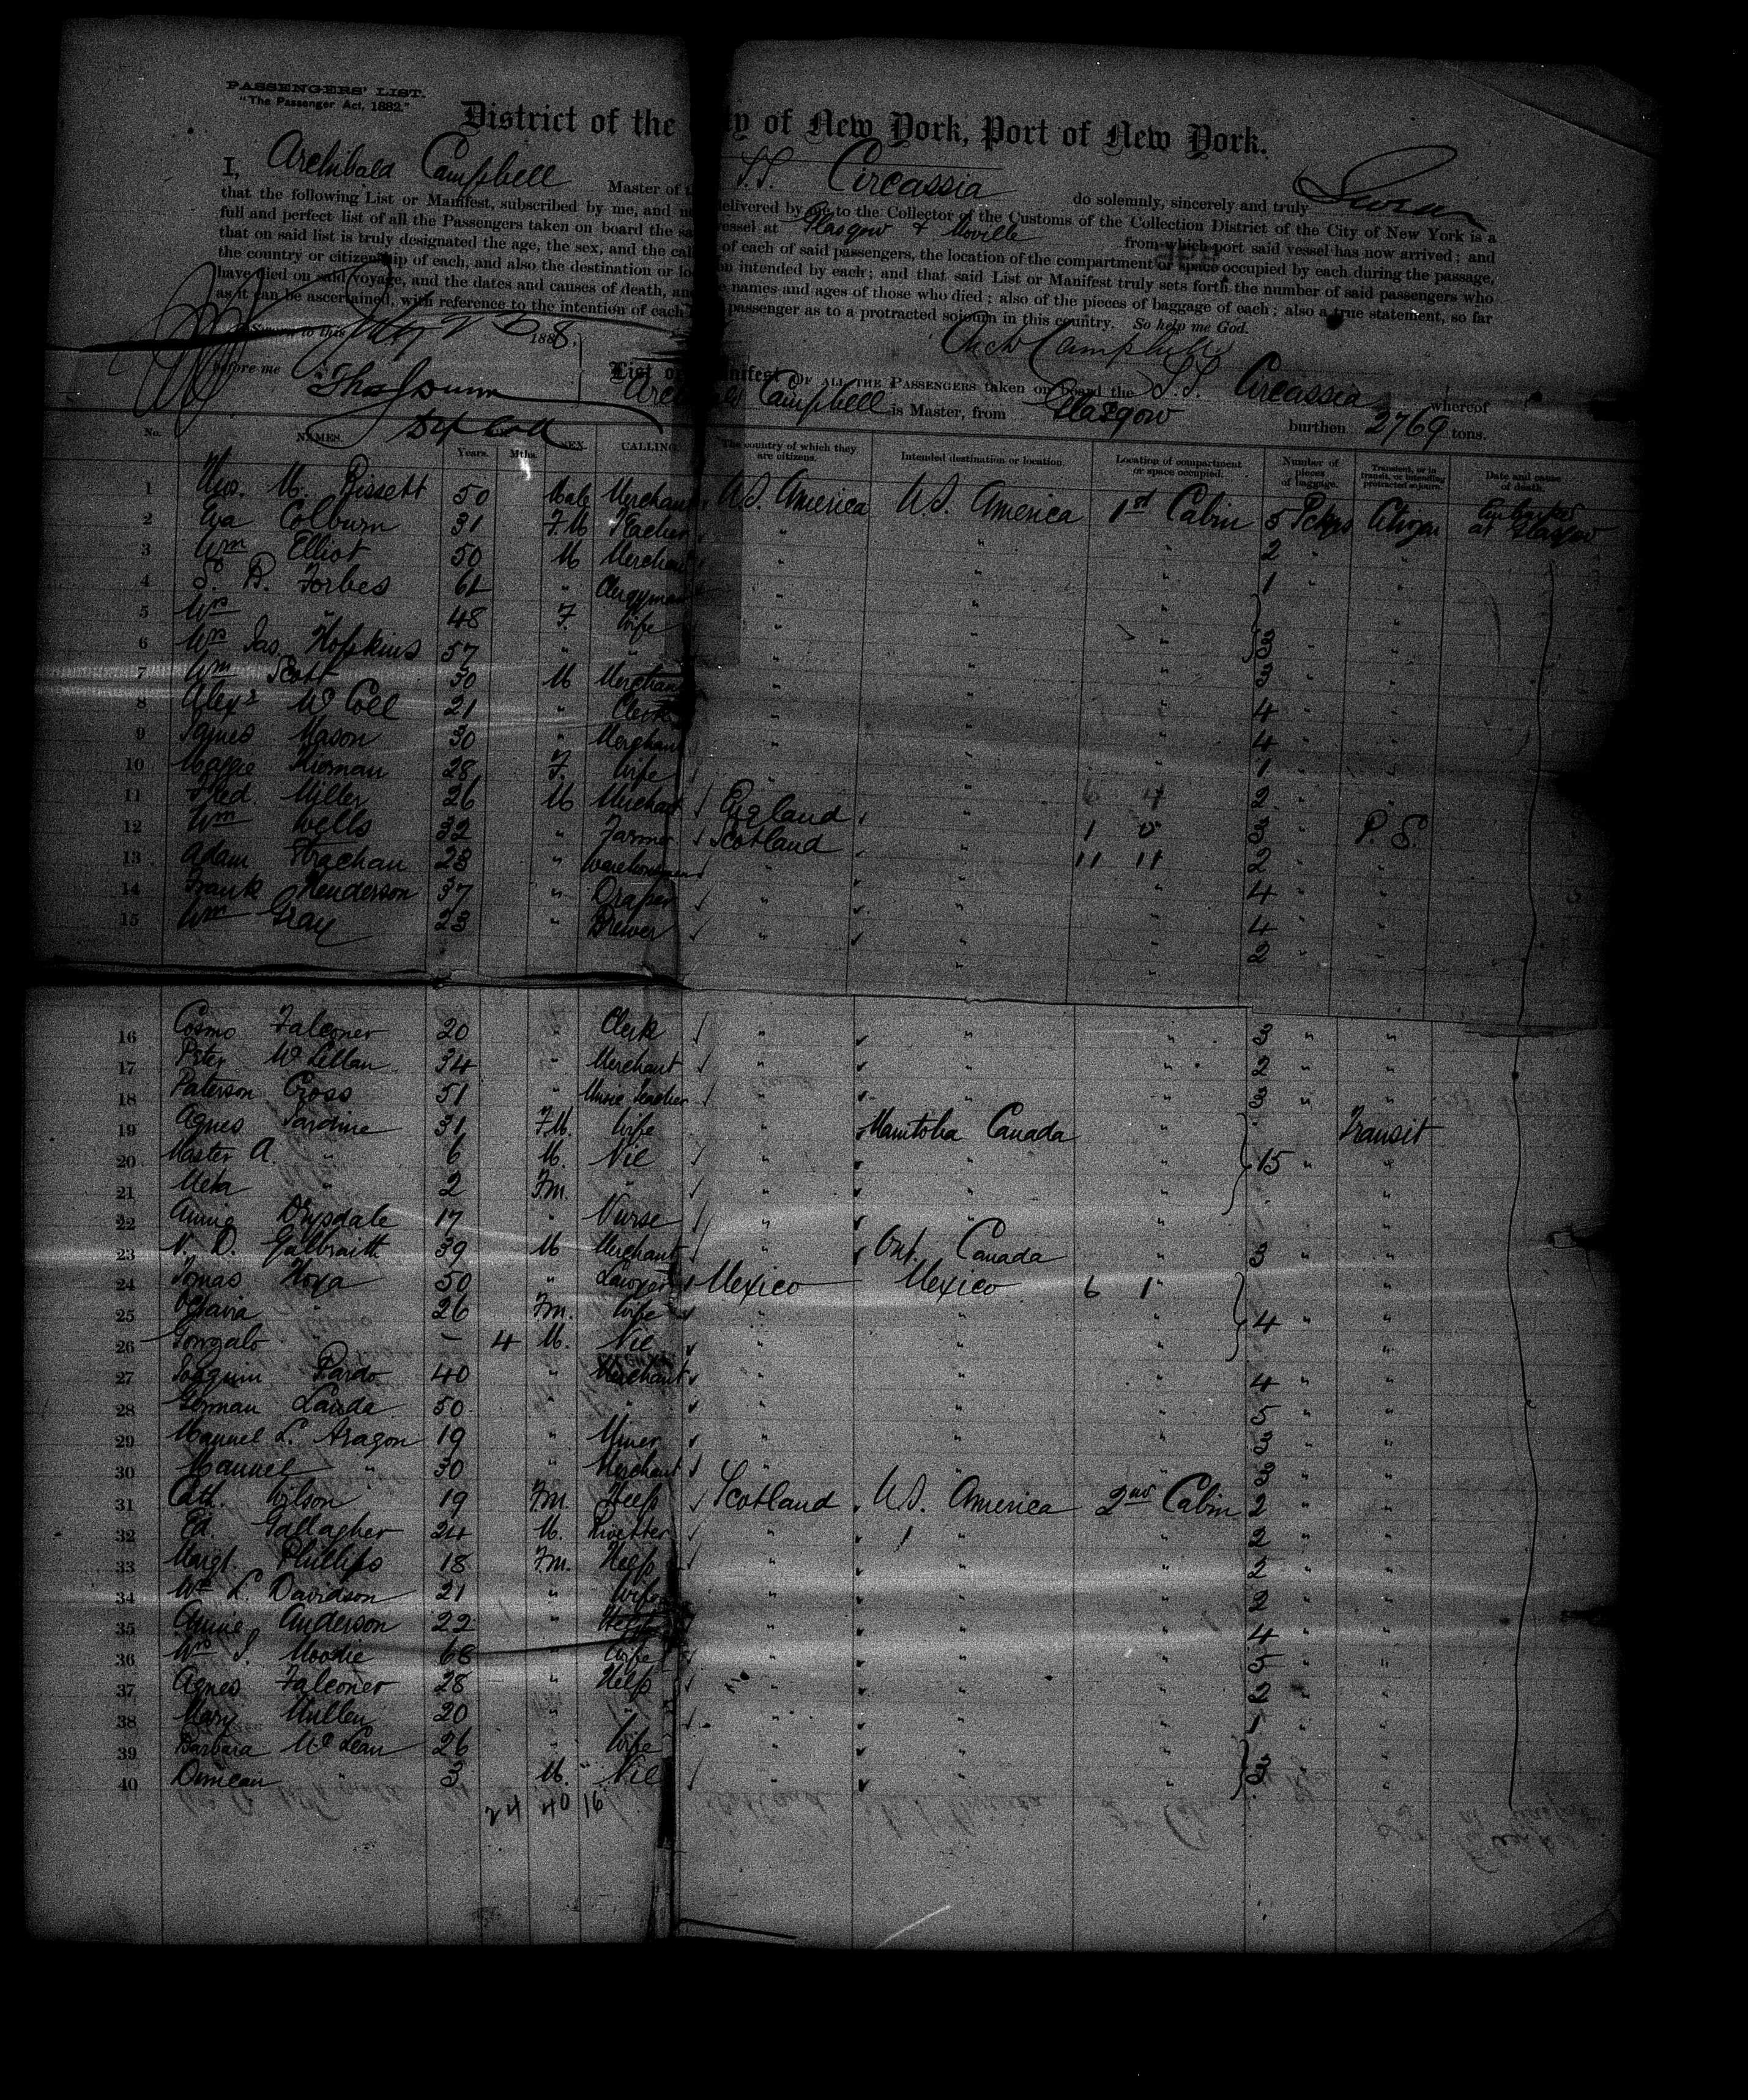 PASSENGERS' LIST.
"The Passenger Act, 1882."
District of the City of New York, Port of New York.
I, Archibald Campbell Master of S.S. Circassia do solemnly, sincerely and truly Swear
that the following List or Manifest, subscribed by me, and delivered by me to the Collector of the Customs of the Collection District of the City of New York is a
full and perfect list of all the Passengers taken on board the vessel at Glasgow & Moville from which port said vessel has now arrived; and
that on said list is truly designated the age, the sex, and the of each of said passengers, the location of the compartment or space occupied by each during the passage,
the country or citizenship of each, and also the destination or intended by each; and that said List or Manifest truly sets forth the number of said passengers who
have died on said voyage, and the dates and causes of death, names and ages of those who died; also of the pieces of baggage of each; also a true statement, so far
as it can be ascertained, with reference to the intention of each passenger as to a protracted sojourn in this country. So help me God.
Sworn to this 188
Arch Campbell
before me
List or Manifest OF ALL THE PASSENGERS taken on board the S.S. Circassia whereof
Campbell is Master, from Glasgow burthen 2769 tons.
No. NAMES. Years. Mths. SEX. CALLING. The country of which they are citizens. Intended destination or location. Location of compartment or space occupied. Number of pieces of baggage. Transient, or in transit, or intending protracted sojourn. Date and cause of death.
1 M. Bissett 50 Male Merchant U.S. America U.S. America 1st Cabin 5 Pckgs Citizen Embarked at Glasgow
2 Eva Colburn 31 F.M Teacher " " " 2 " "
3 Wm Elliot 50 M Merchant " " " 1 " "
4 Forbes 61 " Clergyman " " "
5 Mrs " 48 F. Wife " " " 3 " "
6 Mrs Jas. Hopkins 57 " " " " " 3 " "
7 Wm Scott 30 M Merchant " " " 4 " "
8 Alexr McColl 21 " Clerk " " " 4 " "
9 James Mason 30 " Merchant " " " 1 " "
10 Maggie 28 F. Wife " " 2 "
11 Fred. Miller 26 M Merchant England " 6 4 3 " P.S.
12 Wm Wells 32 " Farmer Scotland " 1 0 2 " "
13 Adam Strachan 23 " Warehouseman " " 11 11 4 " "
14 Frank Henderson 37 " Draper " " " 4 " "
15 Wm Gray 23 " Brewer " " " 2 " "
16 Cosmo Falconer 20 " Clerk " " " 3 " "
17 Peter McLellan 34 " Merchant " " " 2 " "
18 Paterson Cross 51 " Music Teacher " " " 3 " "
19 Agnes Jardine 31 F.M. Wife " Manitoba Canada " Transit
20 Master A. " 6 M. Nil " " " 15 " "
21 Meta " 2 Fm. " " " " "
22 Annie Drysdale 17 " Nurse " " " "
23 N. D. Galbraith 39 M Merchant " Ont. Canada " 3 " "
24 Tomas 50 " Lawyer Mexico Mexico 6 1 "
25 Octavia " 26 Fm. Wife " " " 4 " "
26 Gonzalo 4 M. Nil " " " "
27 Joaquin Pardo 40 " Merchant " " " 4 " "
28 German Landa 50 " " " " " 5 " "
29 Manuel L. Aragon 19 " Miner " " " 3 " "
30 Manuel " 30 " Merchant " " " 3 " "
31 Cath. Wilson 19 Fm. Help Scotland U.S. America 2nd Cabin 2 " "
32 Ed. Gallagher 24 M. Rivetter " " " 2 " "
33 Margt. Phillips 18 Fm. Help " " " 2 " "
34 Mrs L. Davidson 21 " Wife " " " 2 " "
35 Annie Anderson 22 " Help " " " 4 " "
36 Mrs J. Moodie 68 " Wife " " " 5 " "
37 Agnes Falconer 28 " Help " " " 2 " "
38 Mary Mullen 20 " " " " " 1 " "
39 Barbara McLean 26 " Wife " " " "
40 Duncan " 3 M. Nil " " " 3 " "
24 40 16